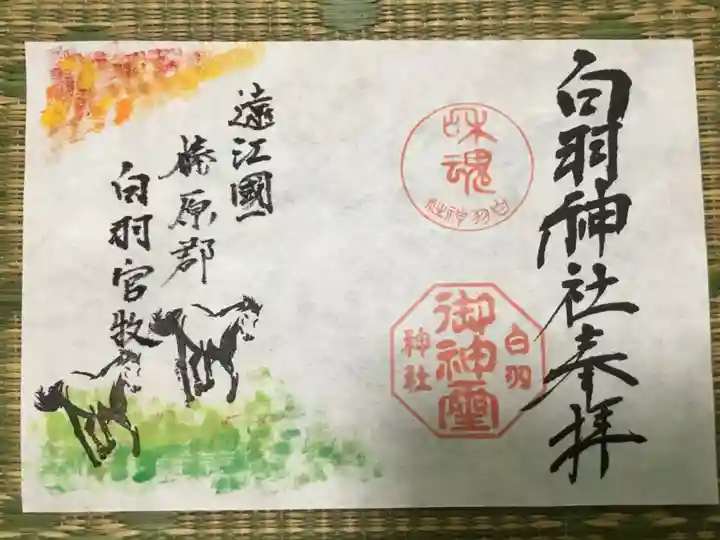 白羽神社奉拝
和魂
白羽神社
白羽
御神璽
神社
遠江國
榛原郡
白羽官牧